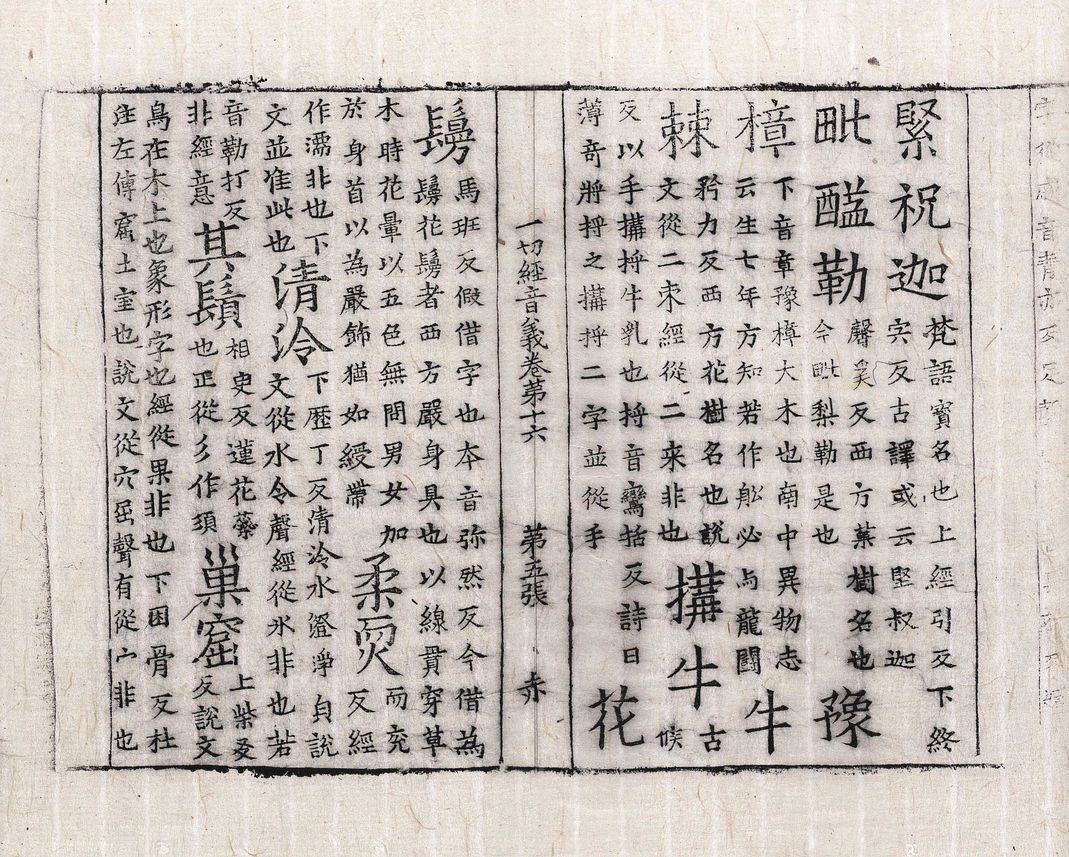 緊祝迦梵語寶名也上經引反下終
字反古譯或云堅叔迦
毗醯勒馨奚反西方菓樹名也
今毗梨勒是也
豫
樟下音章豫樟大木也南中異物志
云生七年方知若作舩必与龍鬪
牛
棘矜力反西方花樹名也說
文從二朿經從二来非也
搆牛古
候
反以手搆捋牛乳也捋音鸞括反詩曰
薄奇將捋之搆捋二字並從手
花
一切經音義卷第十六 第五張 赤
鬘馬班反假借字也本音弥然反今借為
鬘花鬘者西方嚴身具也以線貫穿草
木時花暈以五色無問男女加
於身首以為嚴飾猶如綬帶
柔耎而兖
反經
作濡非也下
文並准此也
清冷下歷丁反清冷水澄淨皃說
文從水令聲經從氷非也若
音勒打反
非經意
其鬚相臾反蓮花蘂
也正從彡作須
巢窟上柴爻
反說文
鳥在木上也象形字也經從果非也下困骨反杜
注左傳窟土室也說文從穴屈聲有從宀非也